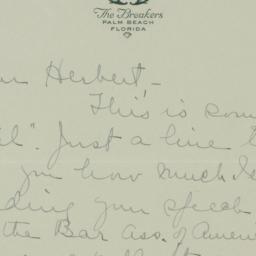 The Breakers
PALM BEACH
FLORIDA
Herbert –
This is som
Just a line
you how much
ding your speech
the Bar Ass. of Amer